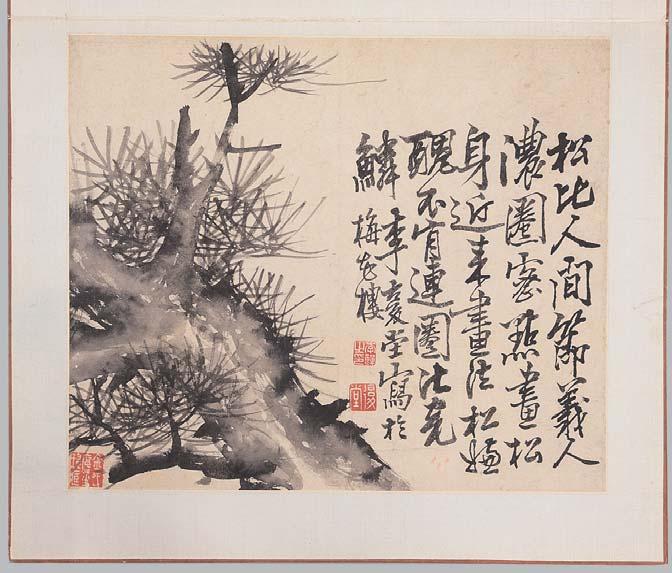 松比人間節義人
濃圈密點畫松
身近來畫法松嫌
醜不肯連圈
鱗 李復堂寫於
梅花樓
復堂